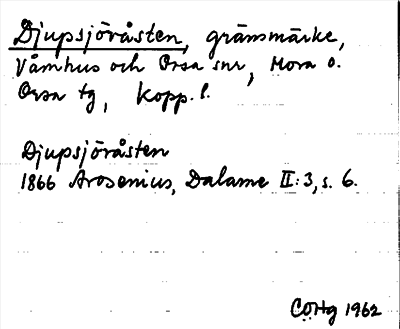 Djupsjöråsten, gränsmärke,
Våmhus och Orsa snr, Mora o.
Orsa tg, Kopp. l.
Djupsjöråsten
1866 Arosenius, Dalarne II:3, s. 6.
COHg 1962